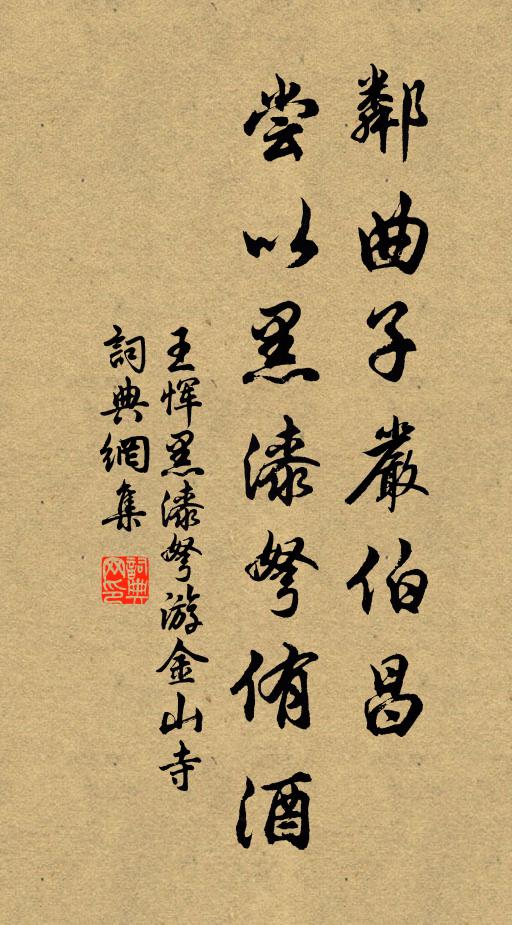 鄰曲子嚴伯昌
嘗以黑漆弩侑酒
王惲黑漆弩游金山寺
詞典網集
詞典網印